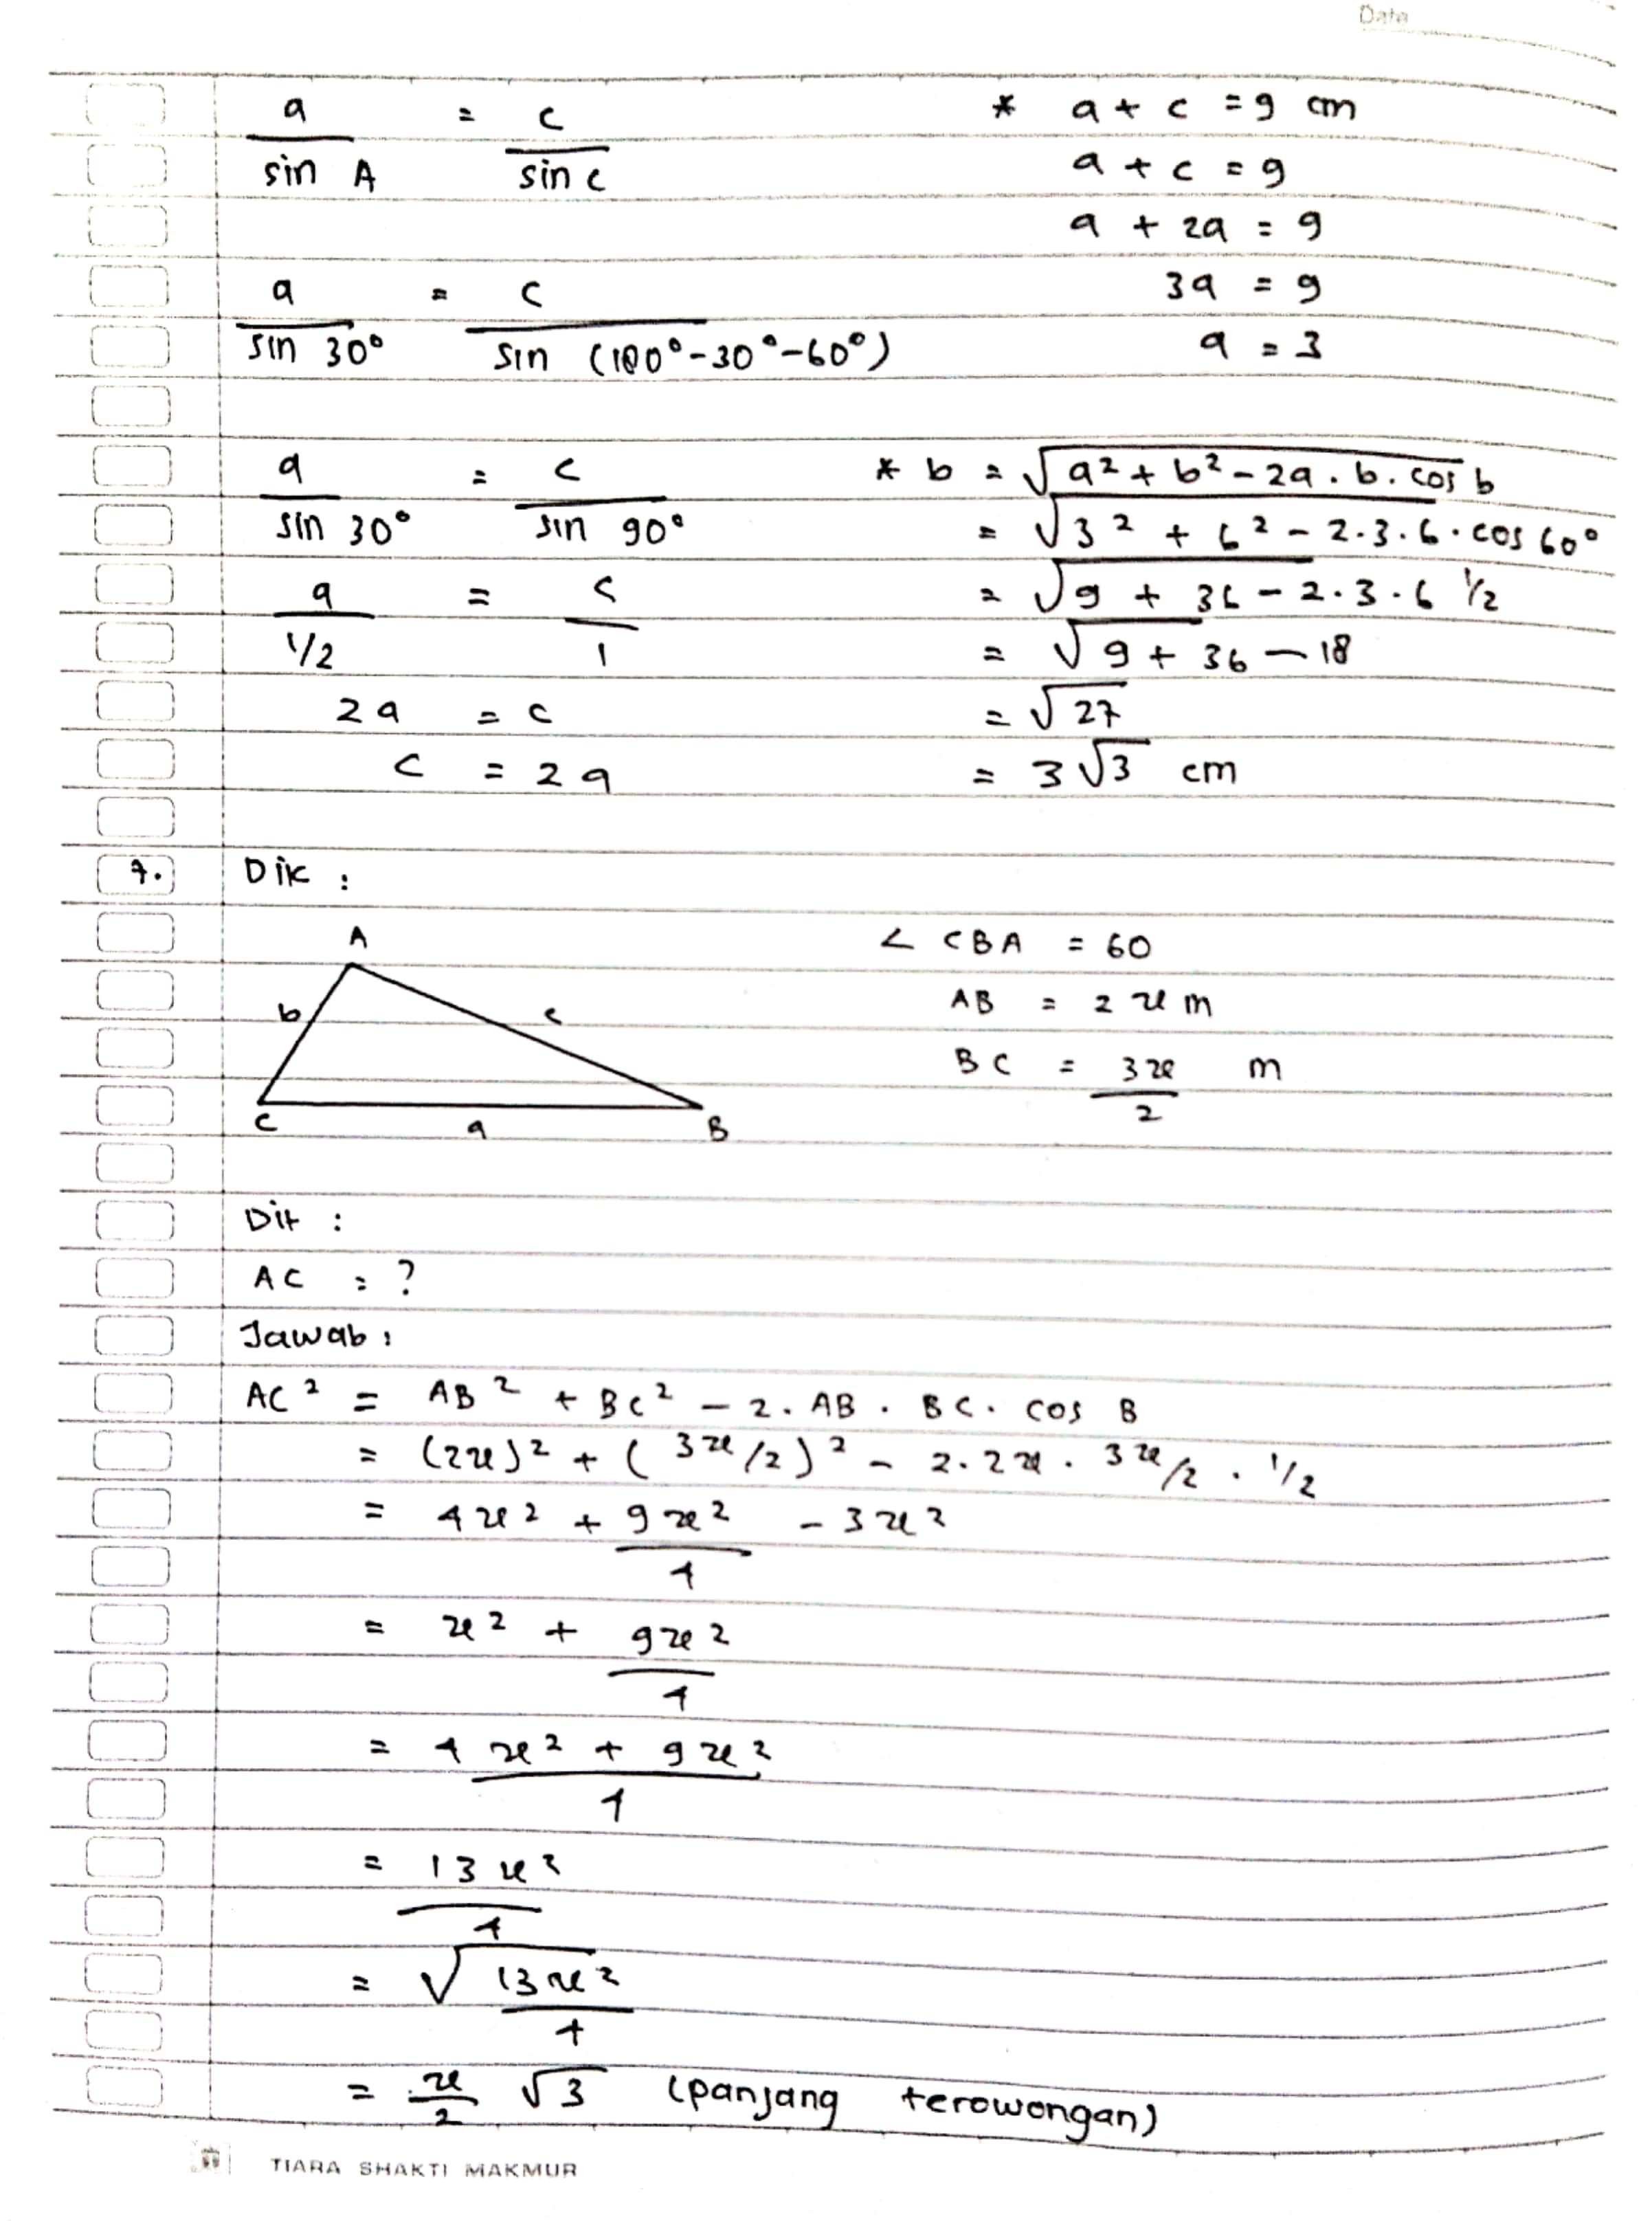 Date
a/sin A = c/sin c
a/sin 30° = c/sin (180°-30°-60°)
a/sin 30° = c/sin 90°
a/½ = c/1
2a = c
c = 2a
* a + c = 9 cm
a + c = 9
a + 2a = 9
3a = 9
a = 3
* b = √a² + b² - 2a . b . cos b
= √3² + 6² - 2.3.6 . cos 60°
= √9 + 36 - 2.3.6 ½
= √9 + 36 - 18
= √27
= 3√3 cm
7. Dik :
A
b
c
C
a
B
∠ CBA = 60
AB = 2x m
BC = 3x/2 m
Dit :
AC = ?
Jawab :
AC² = AB² + BC² - 2. AB . BC. cos B
= (2x)² + (3x/2)² - 2.2x . 3x/2 . ½
= 4x² + 9x²/4 - 3x²
= x² + 9x²/4
= 4x² + 9x²/4
= 13x²/4
= √13x²/4
= x/2 √3 (panjang terowongan)
TIARA SHAKTI MAKMUR